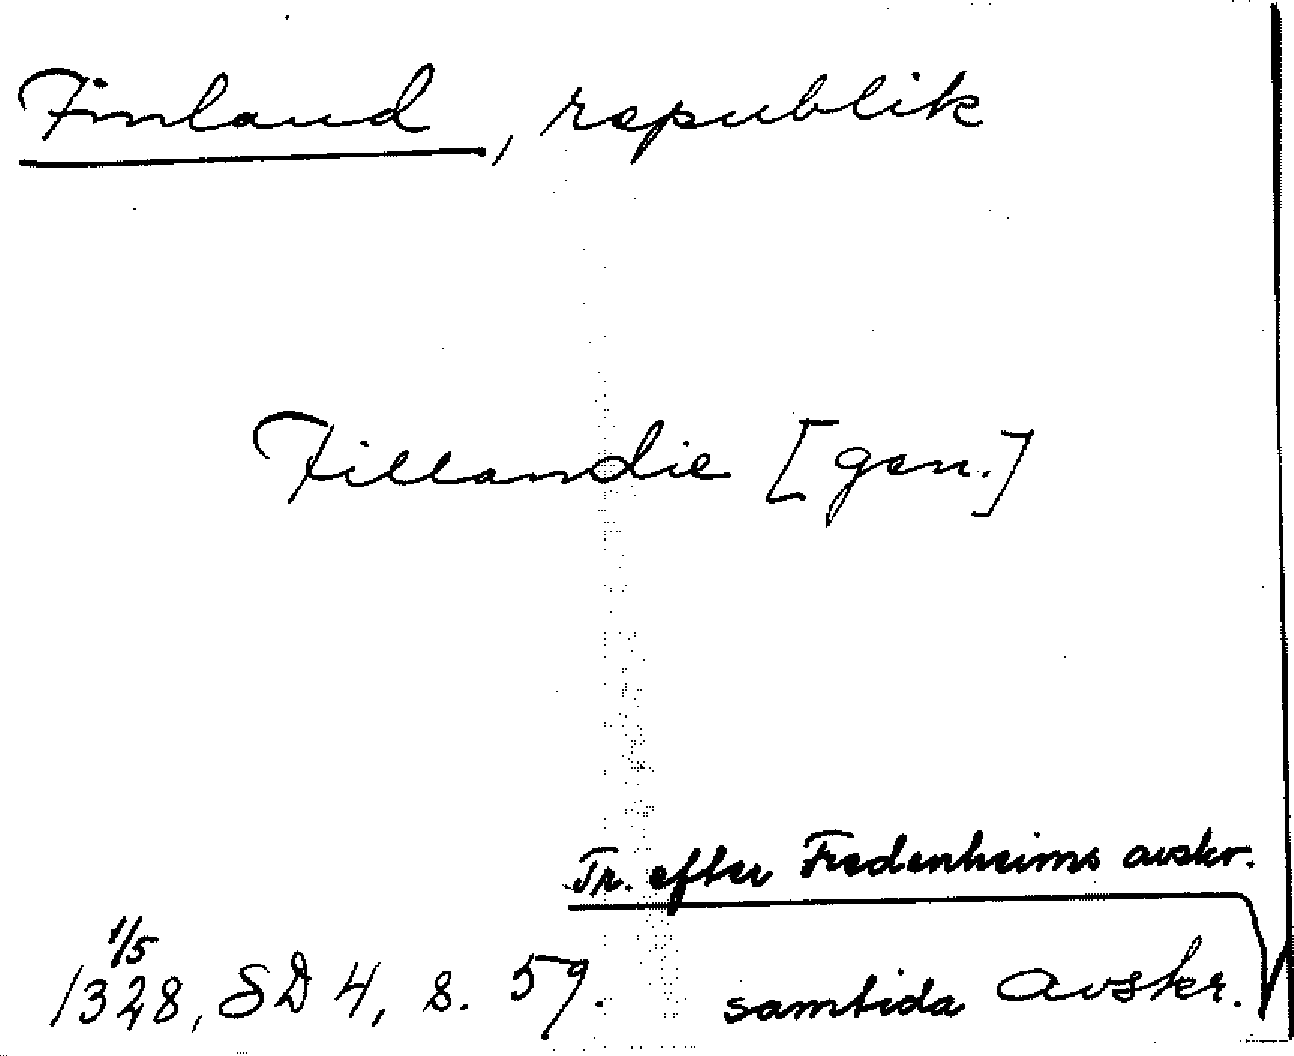 Finland, republik
Fillandie [gen.]
Tr. efter Fredenheims avskr.
1/5
1328, SD 4, s. 57. samtida avskr.